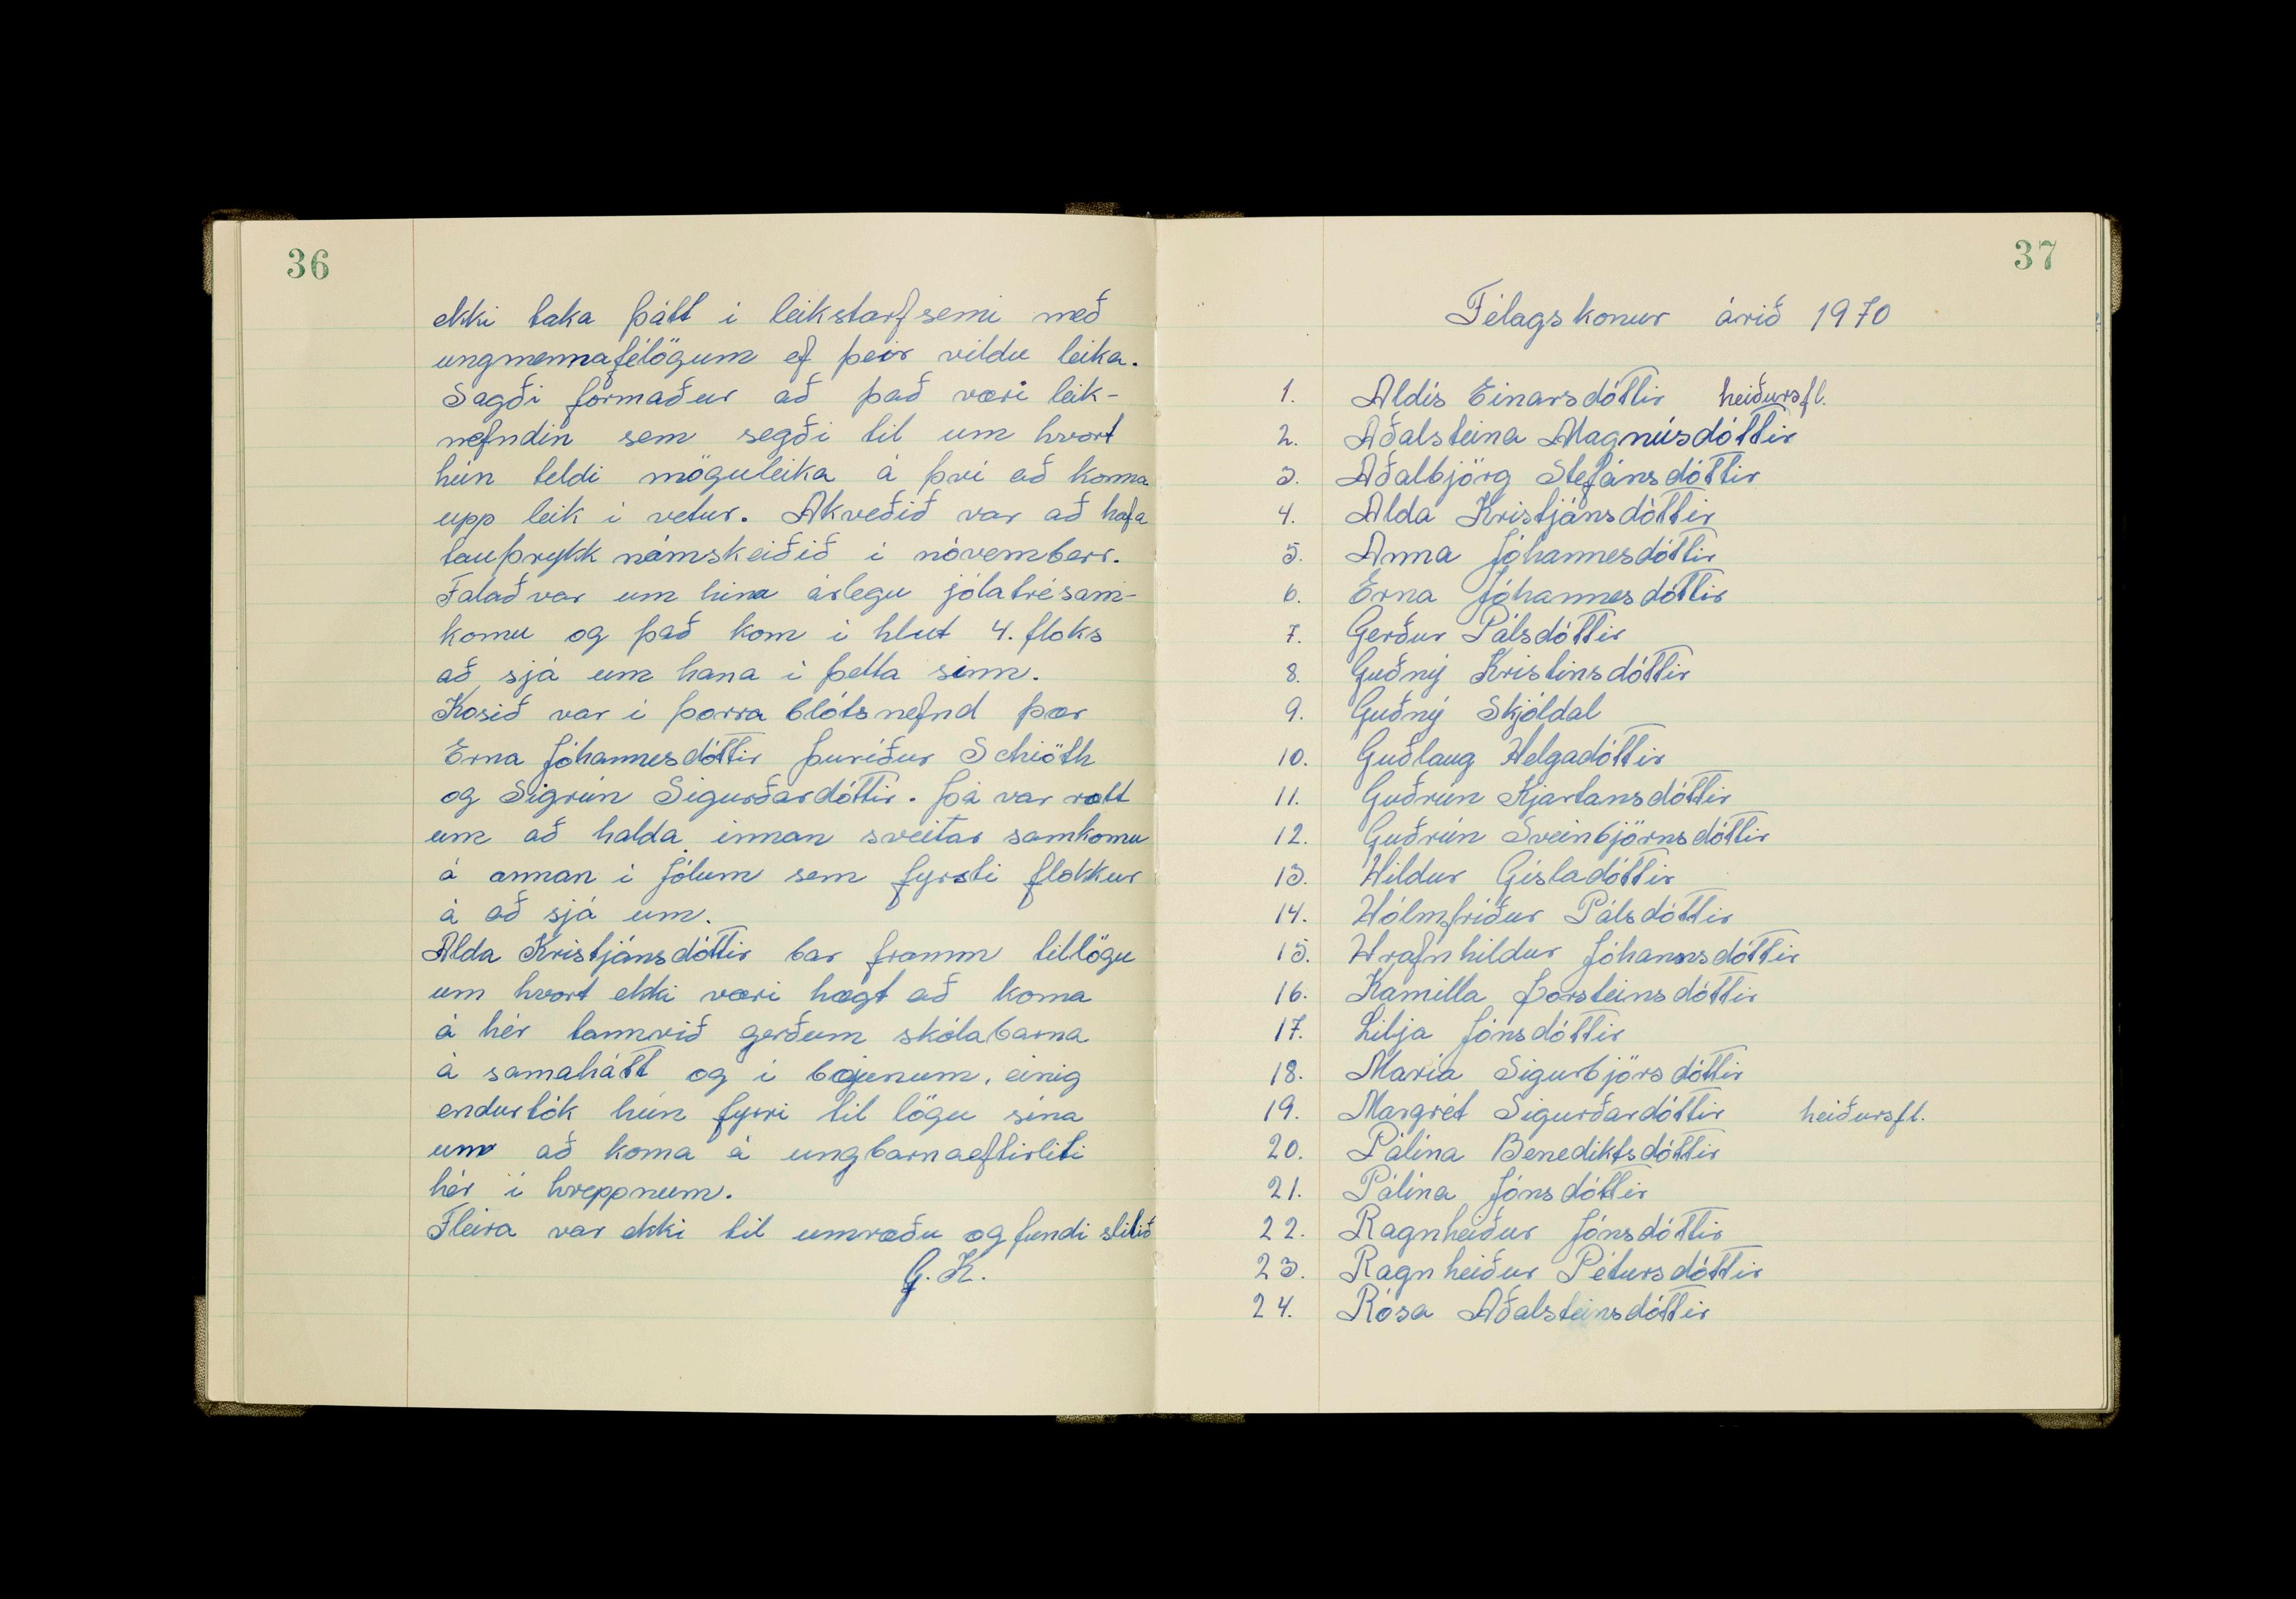 36
ekki taka þátt í leikstarfsemi með
ungmennafélögum ef þeir vildu leika.
Sagði formaður að það væri leik-
nefndin sem segði til um hvort
hún teldi möguleika á því að koma
upp leik í vetur. Akveðið var að hafa
tauþrykk námskeiðið í nóvember.
Talað var um hina árlegu jólatrésam-
komu og það kom í hlut 4. floks
að sjá um hana í þetta sinn.
Kosið var í þorra blótsnefnd þær
Erna Jóhannesdóttir Þuríður Schiöth
og Sigrún Sigurðardóttir. Þá var rætt
um að halda innan sveitar samkomu
á annan í Jólum sem fyrsti flokkur
á að sjá um.
Alda Kristjánsdóttir bar framm tillögu
um hvort ekki væri hægt að koma
á hér tannvið gerðum skólabarna
á samahátt og í bæjunum, einig
endurtók hún fyrri til lögu sína
um að koma á ungbarnaeftirliti
hér í hreppnum.
Fleira var ekki til umræðu og fundi slitið
G. K.
37
Félagskonur árið 1970
1. Aldís Einarsdóttir heiðursfl.
2. Aðalsteina Magnúsdóttir
3. Aðalbjörg Stefánsdóttir
4. Alda Kristjánsdóttir
5. Anna Jóhannesdóttir
6. Erna Jóhannesdóttir
7. Gerður Pálsdóttir
8. Guðný Kristinsdóttir
9. Guðný Skjóldal
10. Guðlaug Helgadóttir
11. Guðrún Kjartansdóttir
12. Guðrún Sveinbjörnsdóttir
13. Hildur Gísladóttir
14. Hólmfríður Pálsdóttir
15. Hrafnhildur Jóhannsdóttir
16. Kamilla Þorsteinsdóttir
17. Lilja Jónsdóttir
18. María Sigurbjörsdóttir
19. Margrét Sigurðardóttir heiðursfl.
20. Pálína Benediktsdóttir
21. Pálína Jónsdóttir
22. Ragnheiður Jónsdóttir
23. Ragnheiður Pétursdóttir
24. Rósa Aðalsteinsdóttir